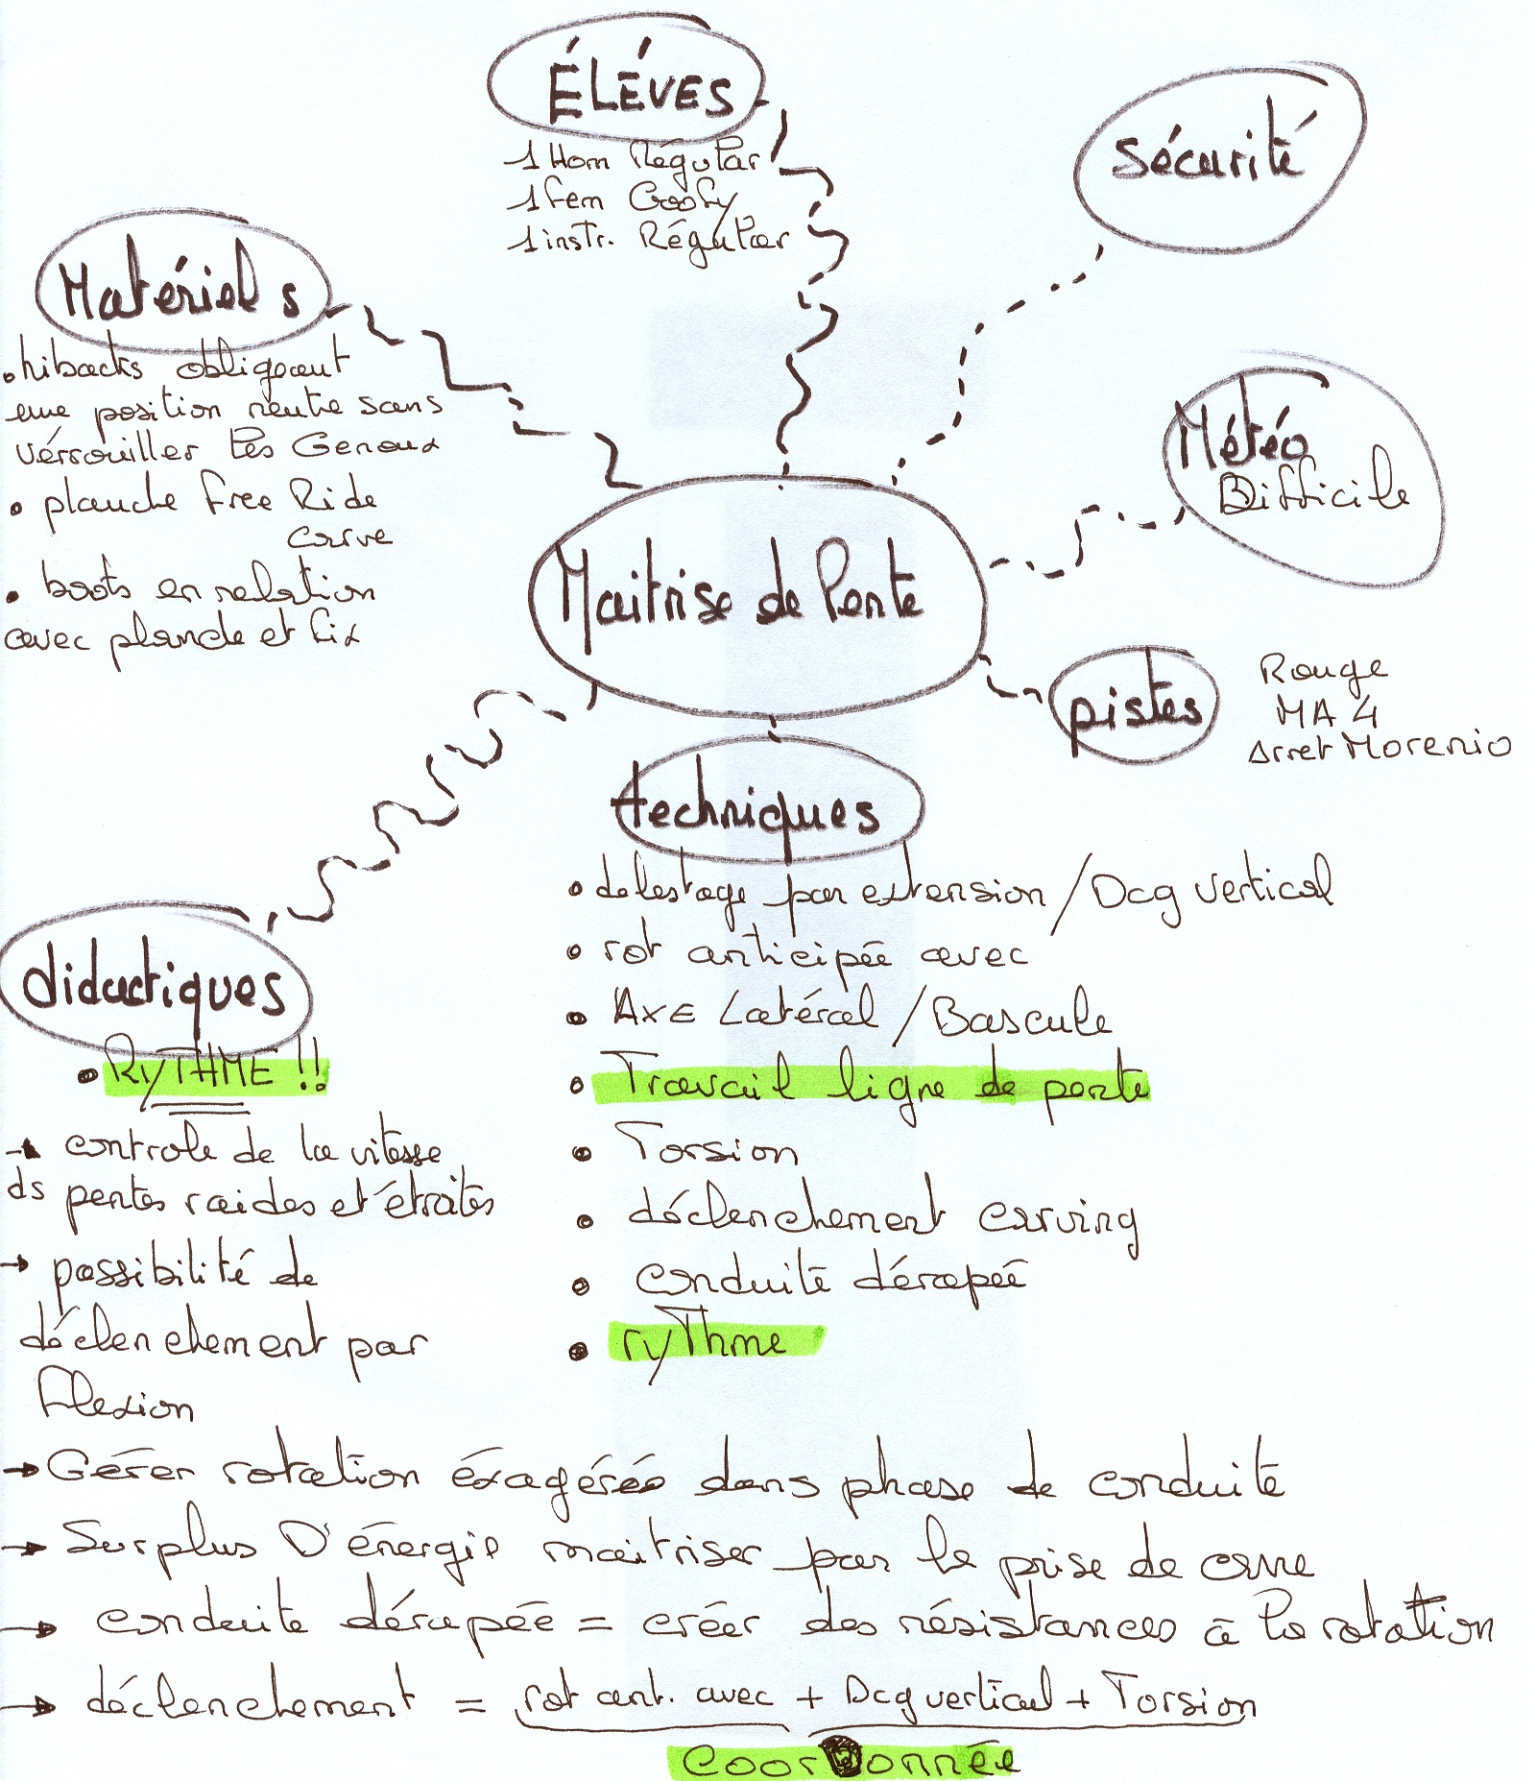 ÉLÉVES
1 Hom Régular
1 fem Goofy
1 instr. Régular
Sécurité
Matériels
• hibacks obligeant
une position neutre sans
vérrouiller les Genoux
• planche free Ride
carve
• boots en relation
avec planche et fix
Météo
Difficile
Maitrise de Pente
pistes
Rouge
MA 4
Arret Morenio
techniques
• delestage par extension / Dcg vertical
• rot anticipée avec
• AXE Latéral / Bascule
• Travail ligne de pente
• Torsion
• déclenchement carving
• conduite dérapée
• ryThme
didactiques
• RyTHME !!
→ controle de la vitesse
ds pentes raides et étraites
→ possibilité de
déclenchement par
flexion
→ Gérer rotation éxagérée dans phase de conduite
→ Surplus D'énergie maitriser par la prise de carre
→ conduite dérapée = créer des résistances à la rotation
→ déclenchement = rot ant. avec + Dcg vertical + Torsion
coordonnée